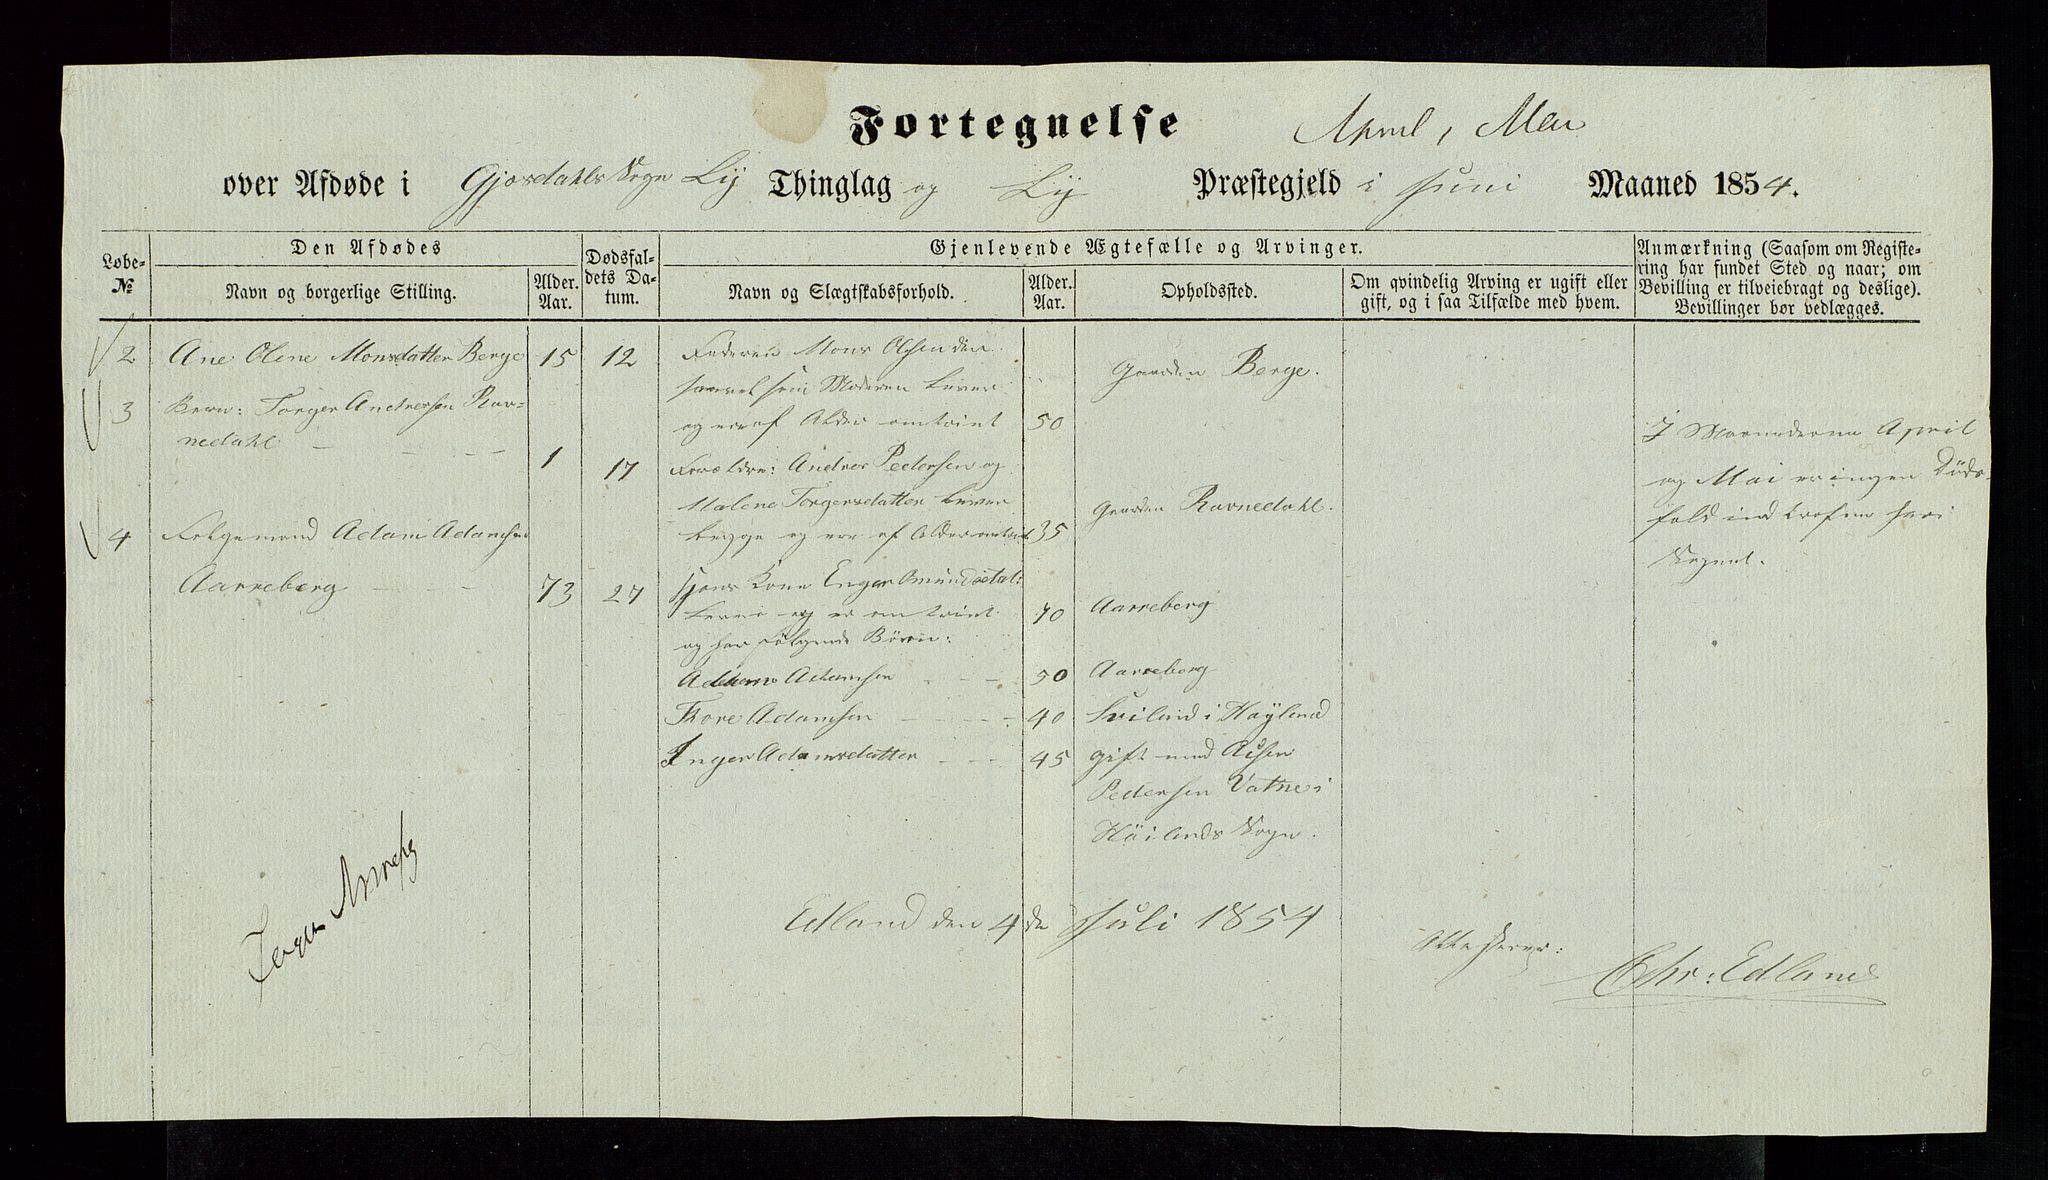 Fortegnelse April, Mai
over Afdøde i Gjøsdahls Sogn Lÿ Thinglag og Lÿ Præstegjeld i Juni Maaned 1854.
Løbe-
№
Den Afdødes
Navn og borgerlige Stilling.
Alder.
Aar.
Dødsfal-
dets Da-
tum.
Gjenlevende Ægtefælle og Arvinger.
Navn og Slægtskabsforhold.
Alder.
Aar.
Opholdssted.
Om qvindelig Arving er ugift eller
gift, og i saa Tilfælde med hvem.
Anmærkning (Saasom om Registe-
ring har fundet Sted og naar; om
Bevilling er tilveiebragt og deslige).
Bevillinger bør vedlægges.
2 Ane Olene Monsdatter Berge 15 12
Faderen Mons Olsen den
saavel som Moderen lever
og er af Alder omtrint 50
Gaarden Berge.
3 Barn: Torger Andersen Rav-
nedahl 1 17
Forældre: Andres Pedersen og
Malene Torgersdatter lever
begge og er af Alder omtrint 35
Gaarden Ravnedahl.
4 Følgemand Adam Adamsen
Aarreberg 73 27
Hans Kone Enger Omundsdat:
lever og er omtrint 70 Aarreberg
og har følgende Børn:
Adam Adamsen 50 Aarreberg
Tore Adamsen 40 Sviland i Høyland
Inger Adamsdatter 45 gift med
Pedersen Vatne i
Höilands Sogn.
I Maanederne April
og Mai er ingen Döds-
fald ind trofne her i
Sognet.
Edland den 4de Juli 1854
Attesterer:
Chr: Edland